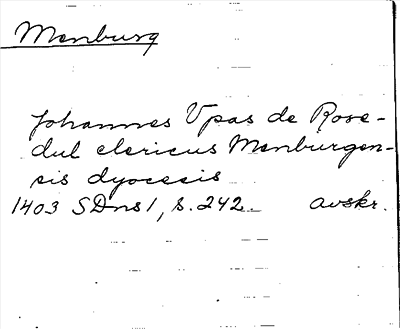 Menburg
Johannes Vpas de Rose-
dul clericus Menburgen-
sis dyocesis
1403 SDns 1, s. 242. avskr.